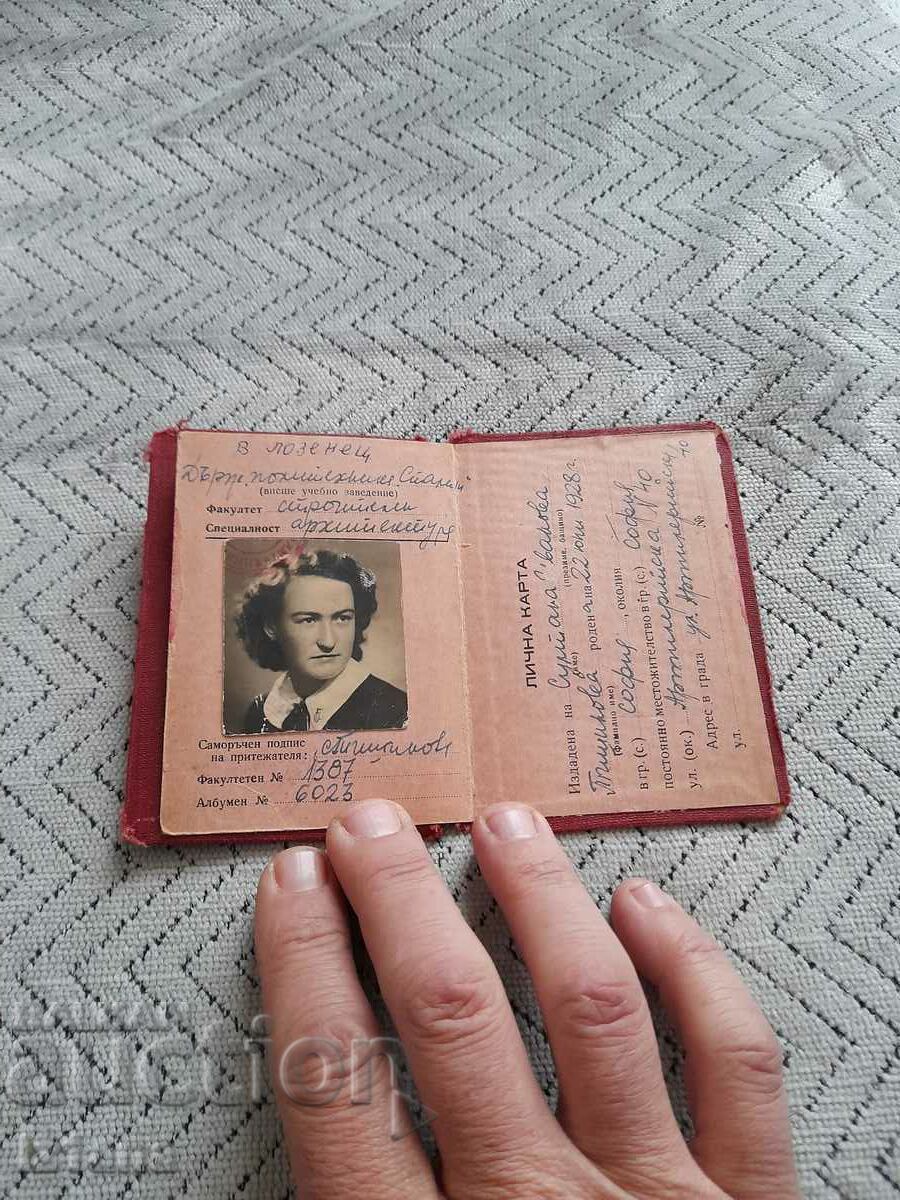 В лозенец
Държ. политехника Сталин
(висше учебно заведение)
Факултет строителен
Специалност архитектура
Саморъчен подпис
на притежателя:
Факултетен № 1387
Албумен № 6023
ЛИЧНА КАРТА
Издадена на Султана Иванова
(име) (презиме, бащино)
родена на 22 юни 1928 г.
(фамилно име)
в гр. (с.) София, околия София
постоянно местожителство в гр. (с.)
ул. (ок.) Артилерийска №40
Адрес в града ул. Артилерийска
ул. № 40
БАЛКАН
auction